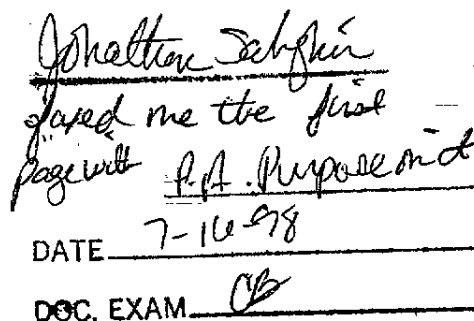 Jonathan
faxed me the first
page with P.A. Purpose on it
DATE 7-16-98
DOC. EXAM CB